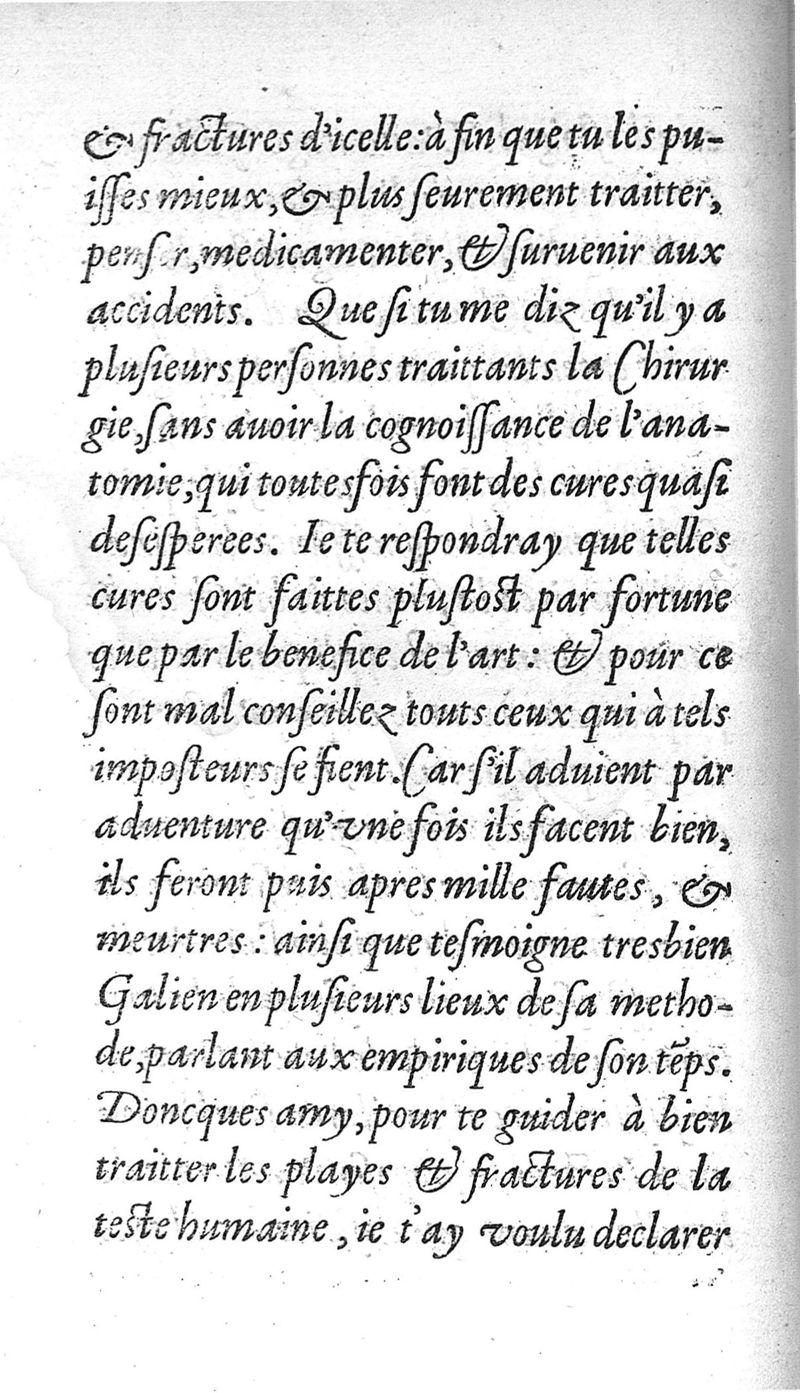 & fractures d'icelle: à fin que tu les pu-
iſſes mieux, & plus ſeurement traitter,
penſer, medicamenter, & ſuruenir aux
accidents. Que ſi tu me diz qu'il y a
pluſieurs perſonnes traittants la Chirur
gie, ſans auoir la cognoiſſance de l'ana-
tomie, qui toutesfois font des cures quaſi
deſeſperees. Ie te reſpondray que telles
cures ſont faittes pluſtoſt par fortune
que par le benefice de l'art: & pour ce
ſont mal conſeillez touts ceux qui à tels
impoſteurs ſe fient. Car ſ'il aduient par
aduenture qu'vne fois ils facent bien,
ils feront puis apres mille fautes, &
meurtres: ainſi que teſmoigne tresbien
Galien en pluſieurs lieux de ſa metho-
de, parlant aux empiriques de ſon tẽps.
Doncques amy, pour te guider à bien
traitter les playes & fractures de la
teſte humaine, ie t'ay voulu declarer